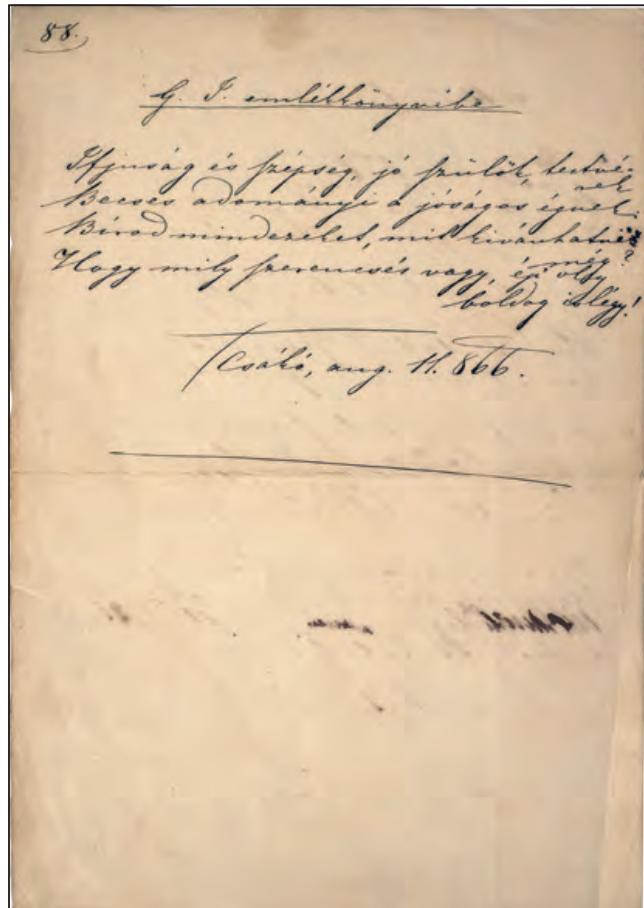 88.
G. I. emlékkönyvibe
Ifjuság és szépség, jó szülőt, testvé-
rek
Becses adományi a jóságos égnek.
Birod mindezeket, mit kivánhatnék
még?
Hogy mily szerencsés vagy, ép oly
boldog is légy!
Csákó, aug. 11. 866.